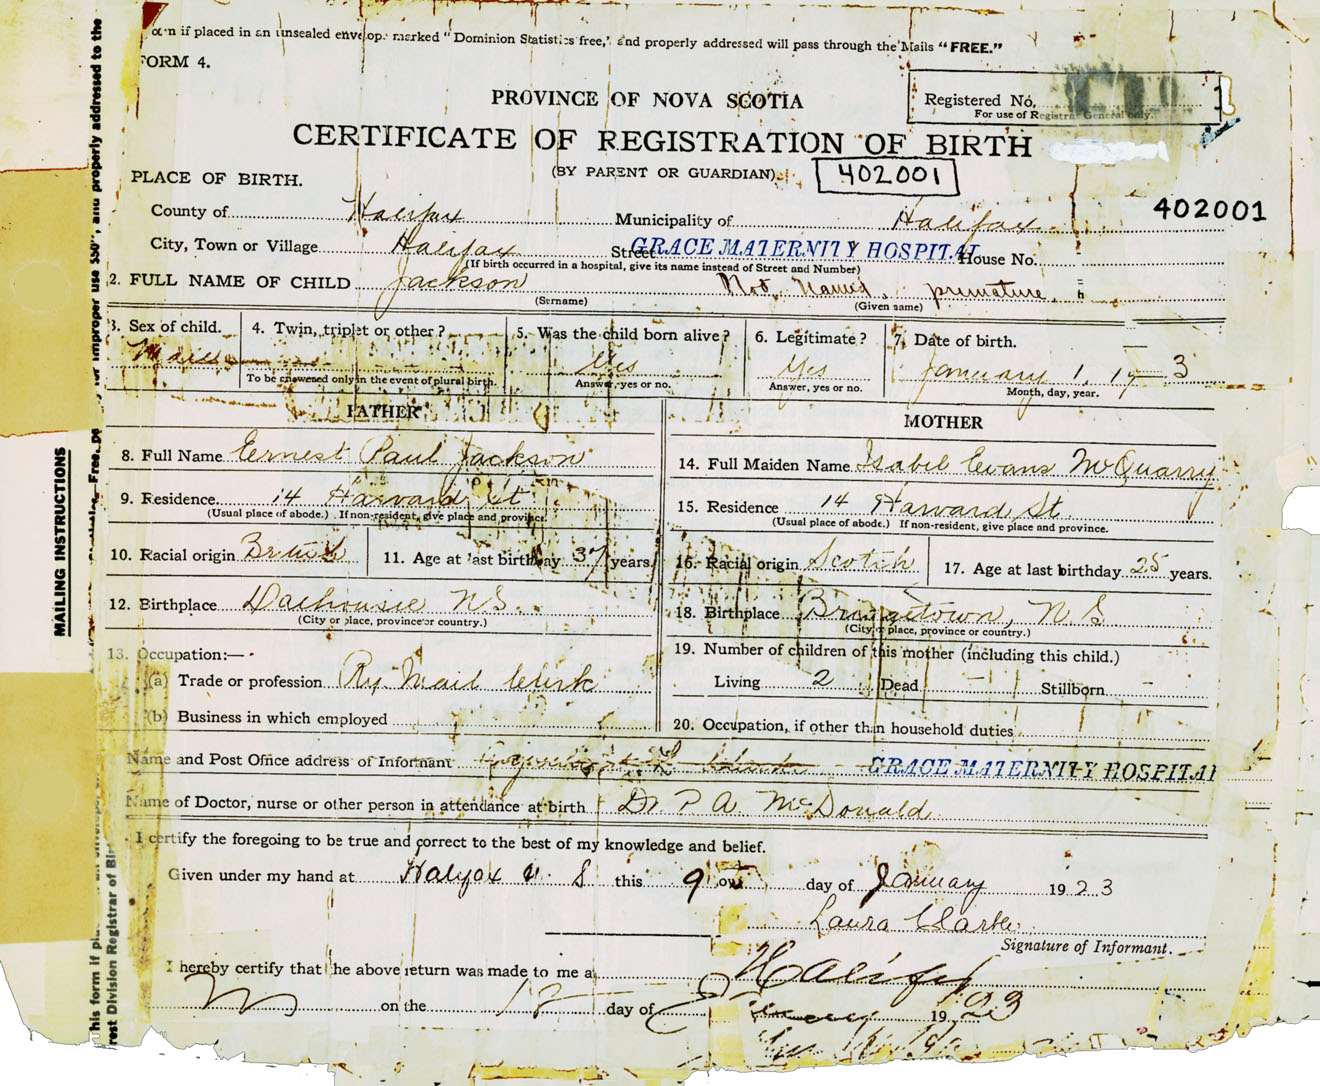 if placed in an unsealed envelop. marked "Dominion Statistics free," and properly addressed will pass through the Mails "FREE."
FORM 4.
PROVINCE OF NOVA SCOTIA
Registered No.
For use of Registrar General only.
CERTIFICATE OF REGISTRATION OF BIRTH
(BY PARENT OR GUARDIAN)
402001
PLACE OF BIRTH.
402001
County of Halifax Municipality of Halifax
City, Town or Village Halifax Street GRACE MATERNITY HOSPITAL House No.
(If birth occurred in a hospital, give its name instead of Street and Number)
2. FULL NAME OF CHILD Jackson Not Named, premature
(Surname) (Given name)
3. Sex of child. 4. Twin, triplet or other? 5. Was the child born alive? 6. Legitimate? 7. Date of birth.
Male Yes Yes January 1, 19 3
To be answered only in the event of plural birth. Answer, yes or no. Answer, yes or no. Month, day, year.
FATHER
MOTHER
8. Full Name Ernest Paul Jackson
14. Full Maiden Name Isabel Evans McQuarry
9. Residence 14 Harvard St
(Usual place of abode.) If non-resident, give place and province.
15. Residence 14 Harvard St.
(Usual place of abode.) If non-resident, give place and province.
10. Racial origin British 11. Age at last birthday 37 years.
16. Racial origin Scotch 17. Age at last birthday 25 years.
12. Birthplace Dalhousie N.S.
(City or place, province or country.)
18. Birthplace Bridgetown, N.S
(City or place, province or country.)
13. Occupation:—
19. Number of children of this mother (including this child.)
(a) Trade or profession Ry. Mail Clerk
Living 2 Dead - Stillborn -
(b) Business in which employed
20. Occupation, if other than household duties
Name and Post Office address of Informant GRACE MATERNITY HOSPITAL
Name of Doctor, nurse or other person in attendance at birth Dr. P. A. McDonald
I certify the foregoing to be true and correct to the best of my knowledge and belief.
Given under my hand at Halifax N. S this 9 day of January 1923
Laura Clarke
Signature of Informant.
I hereby certify that the above return was made to me at Halifax
on the 12 day of 1923
MAILING INSTRUCTIONS
for improper use $50", and properly addressed to the
his form if
rest Division Registrar of